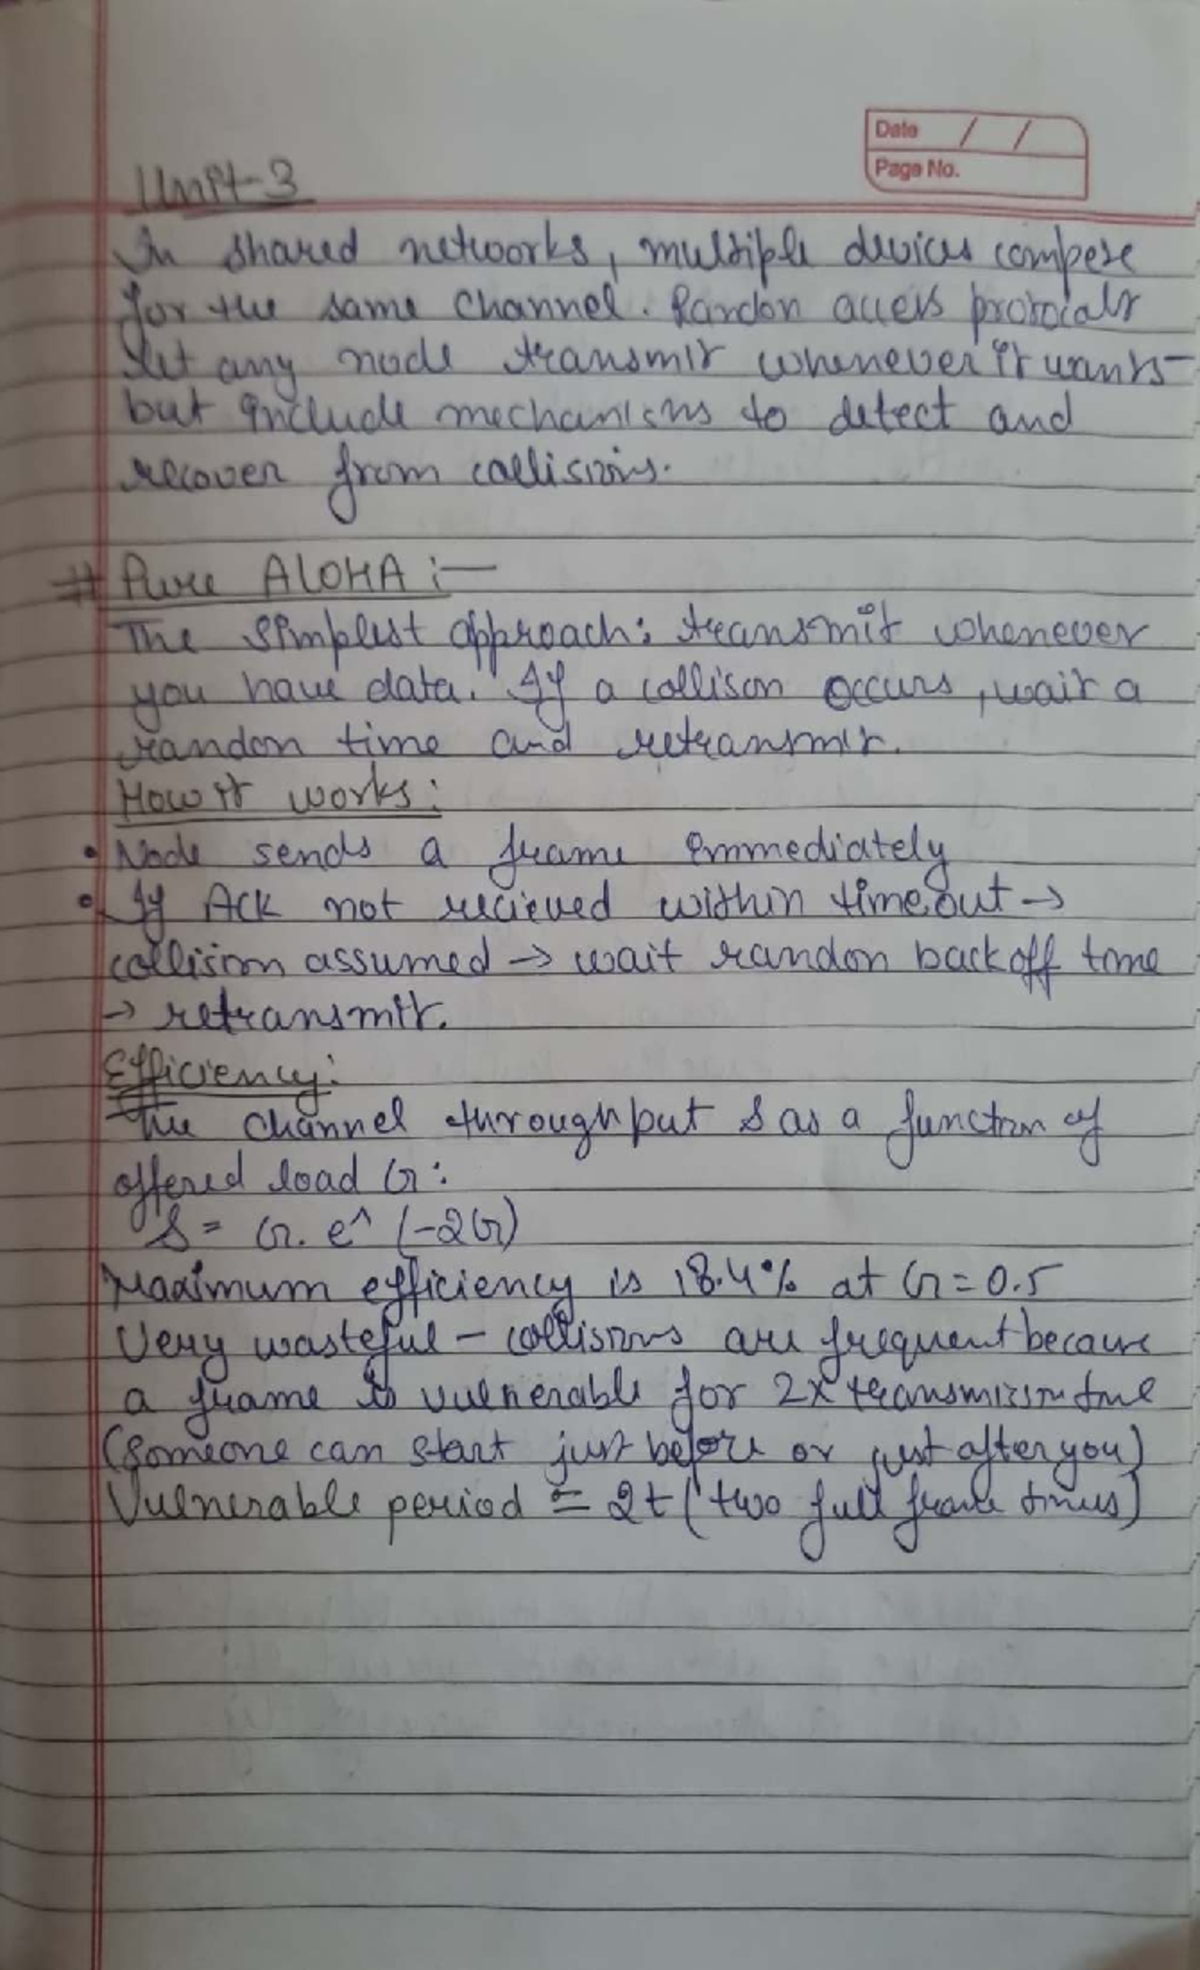 Date / /
Page No.
Unit-3
In shared networks, multiple devices compete
for the same channel. Randon access protocols
let any node transmit whenever it wants-
but include mechanisms to detect and
recover from collisions.
# Pure ALOHA :-
The simplest approach: transmit whenever
you have data. If a collison occurs, wait a
randon time and retransmit.
How it works:
• Node sends a frame immediately
• If Ack not recieved within timeout →
collision assumed → wait randon backoff time
→ retransmit.
Efficiency:
The channel throughput S as a function of
offered load G:
S = G. e^ (-2G)
Maximum efficiency is 18.4% at G = 0.5
Very wasteful - collisions are frequent because
a frame is vulnerable for 2x transmission time
(someone can start just before or just after you)
Vulnerable period = 2t (two full frame times)